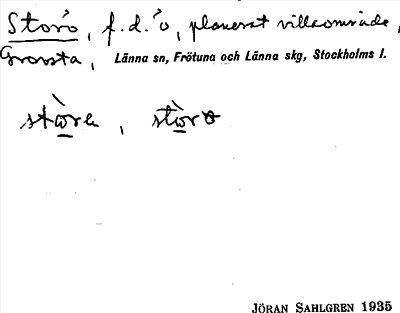 Storö, f.d. ö, planerat villaområde,
Grovsta, Länna sn, Frötuna och Länna skg, Stockholms l.
JÖRAN SAHLGREN 1935